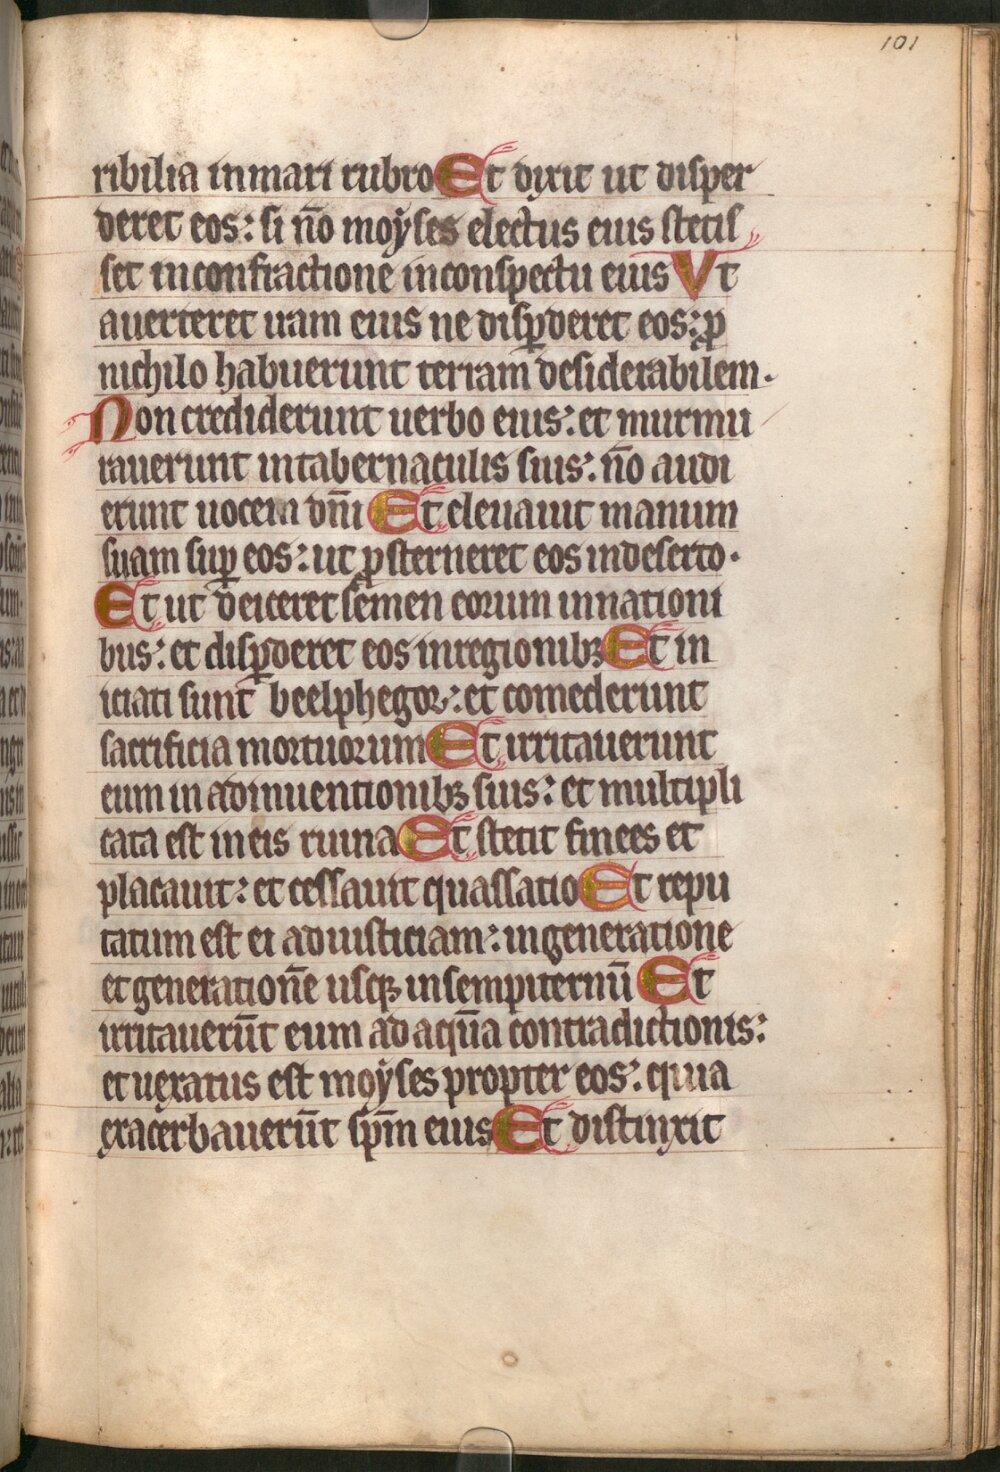 101
ribilia in mari rubro Et dixit ut disper
deret eos: si nō moẏses electus eius stetis
set in confractione in conspectu eius Vt
auerteret iram eius ne disꝑderet eos: ꝓ
nichilo habuerunt terram desiderabilem.
Non crediderunt uerbo eius: et murmu
rauerunt in tabernaculis suis: nō audi
erunt uocem dn̄i Et eleuauit manum
suam suꝑ eos: ut ꝓsterneret eos in deserto.
Et ut deiceret semen eorum in nationi
bus: et disꝑderet eos in regionibꝫ Et in
iciati sunt beelphegor: et comederunt
sacrificia mortuorum Et irritauerunt
eum in adinuentionibꝫ suis: et multipli
cata est in eis ruina Et stetit finees et
placauit: et cessauit quassatio Et repu
tatum est ei ad iusticiam: in generatione
et generationē usqꝫ in sempiternū Et
irritauerūt eum ad aquā contradictionis:
et uexatus est moẏses propter eos: quia
exacerbauerūt sp̄m eius Et distinxit